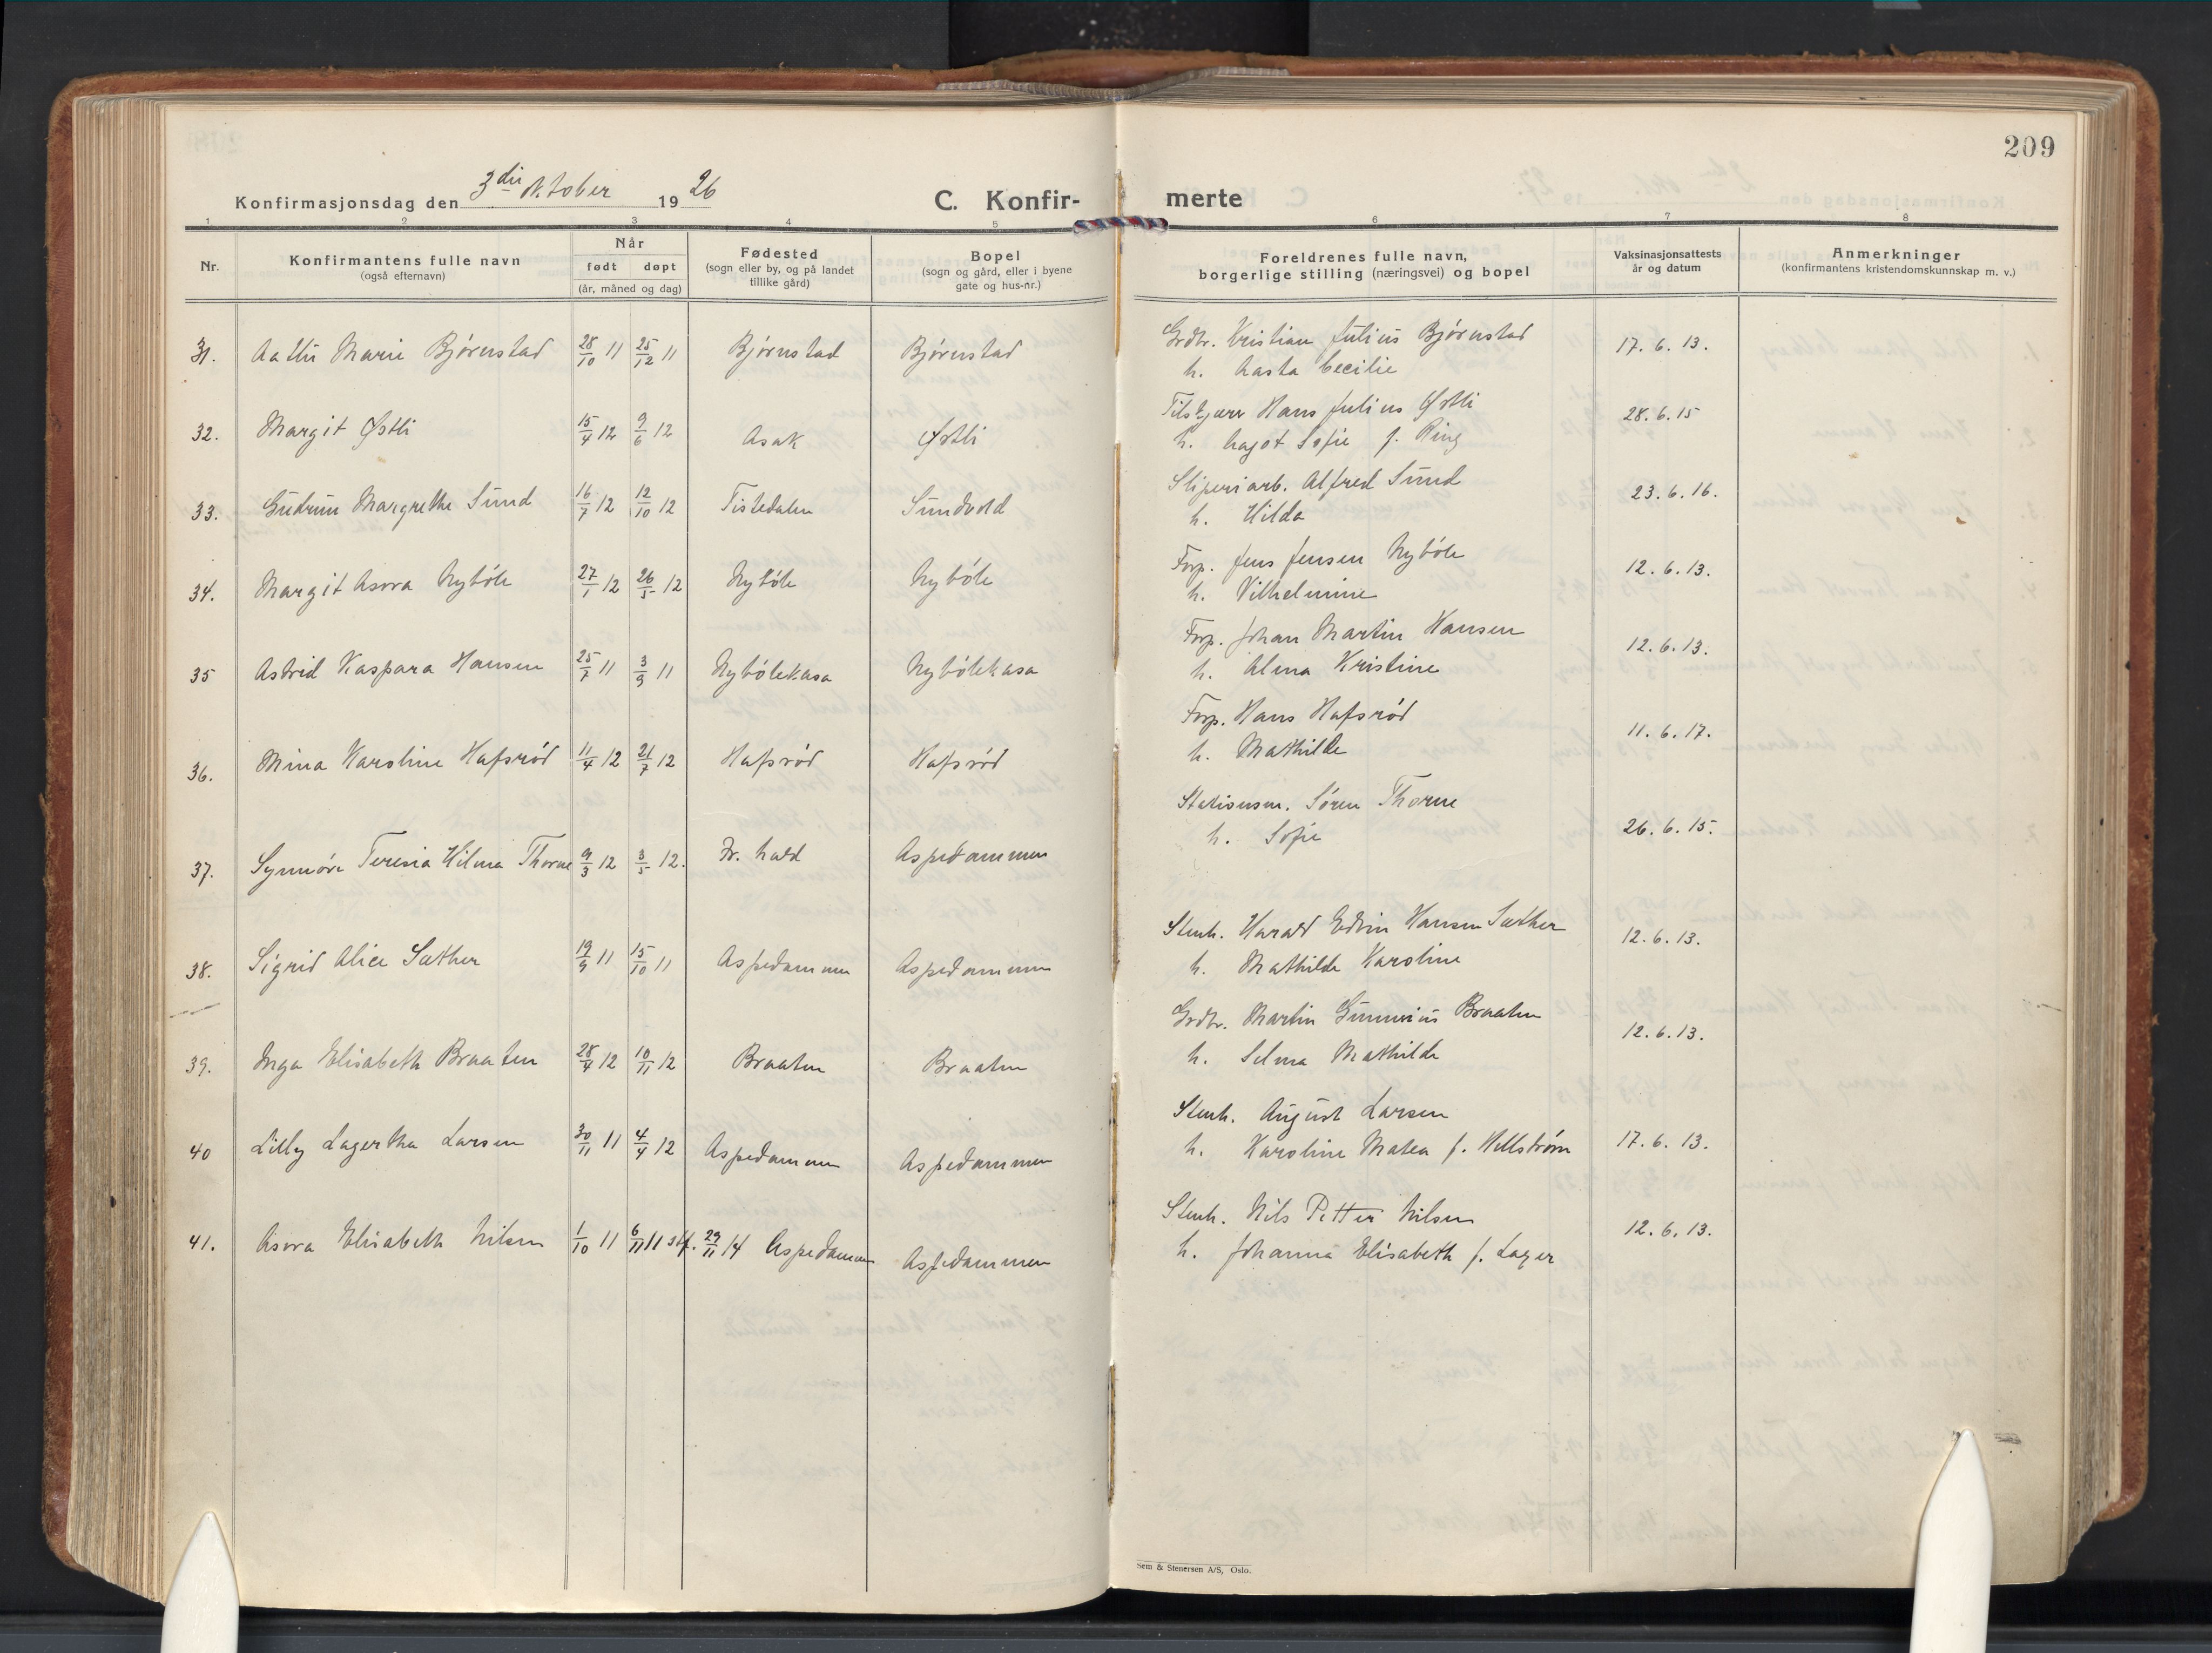 209
Konfirmasjonsdag den 3die Oktober 1926
C. Konfir-
merte
1 2 3 4 5 6 7 8
Nr.
Konfirmantens fulle navn
(også efternavn)
Når
født døpt
(år, måned og dag)
Fødested
(sogn eller by, og på landet
tillike gård)
Bopel
(sogn og gård, eller i byene
gate og hus-nr.)
Foreldrenes fulle navn,
borgerlige stilling (næringsvei) og bopel
Vaksinasjonsattests
år og datum
Anmerkninger
(konfirmantens kristendomskunnskap m. v.)
31. Marie Bjørnstad 28/10 11 25/12 11 Bjørnstad Bjørnstad Grdbr. Kristian Julius Bjørnstad 17. 6. 13.
h. Aasta Cecilie
32. Margit Østli 15/4 12 9/6 12 Asak Østli Hans Julius Østli 28. 6. 15
h. Hagot Sofie f. Ring
33. Gudrun Margrethe Sund 16/7 12 12/10 12 Tistedalen Sundvold Sliperiarb. Alfred Sund 23. 6. 16.
h. Hilda
34. Margit Asora Nybøle 27/1 12 26/5 12 Nybøle Nybøle Forp. Jens Jensen Nybøle 12. 6. 13.
h. Vilhelmine
35 Astrid Kaspara Hansen 25/7 11 3/9 11 Nybølekasa Nybølekasa Forp. Johan Martin Hansen 12. 6. 13.
h. Alma Kristine
36. Mina Karoline Hafsrød 11/4 12 21/7 12 Hafsrød Hafsrød Forp. Hans Hafsrød 11. 6. 17.
h. Mathilde
37. Synnøve Teresia Hilma Thorne 9/3 12 3/5 12. Fr. hald Aspedammen Stationsm. Søren Thorne 26. 6. 15.
h. Sofie
38. Sigrid Alice Sæther 19/9 11 15/10 11 Aspedammen Aspedammen Stenh. Harald Edvin Hansen Sæther 12. 6. 13.
h. Mathilde Karoline
39. Inga Elisabeth Braaten 28/4 12 10/11 12 Braaten Braaten Grdbr. Martin Gunerius Braaten 12. 6. 13.
h. Selma Mathilde
40 Lilly Lagertha Larsen 30/11 11 4/4 12 Aspedammen Aspedammen Stenh. August Larsen 17. 6. 13.
h. Karoline Matea f. Hellstrøm
41. Asora Elisabeth Nilsen 1/10 11 6/11 11 stf. 29/11 14 Aspedammen Aspedammen Stenh. Nils Petter Nilsen 12. 6. 13.
h. Johanna Elisabeth f. Lager
Sem & Stenersen A/S, Oslo.